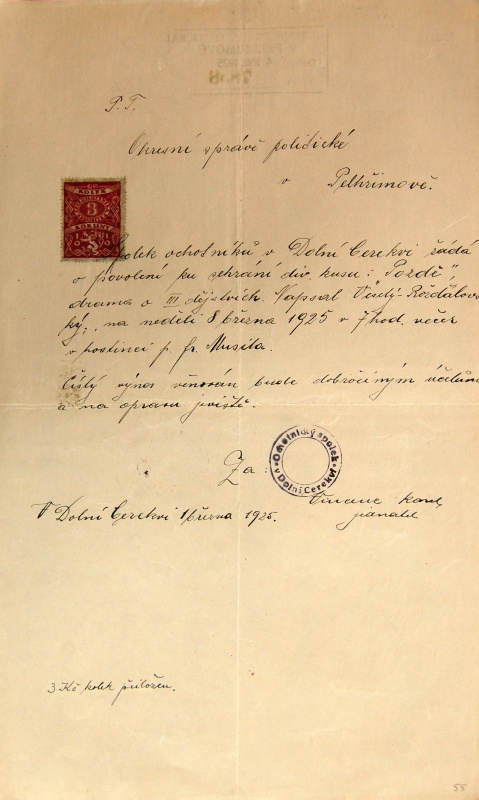 P. T.
Okresní správě politické
v Pelhřimově.
KOLEK
3
KORUNY
Spolek ochotníků v Dolní Cerekvi žádá
o povolení ku sehrání div. kusu: „Pozdě"
drama o III dějstvích. Napsal Všedý-Rožďálov-
ský, na neděli 8 března 1925 v 7 hod. večer
v hostinci p. fr. Musila.
Čistý výnos věnován bude dobročiným účelům
a na opravu jeviště.
Za:
Ochotnický spolek
v Dolní Cerekvi
Karel
jednatel
V Dolní Cerekvi 1 března 1925.
3 Kč kolek přiložen.
55